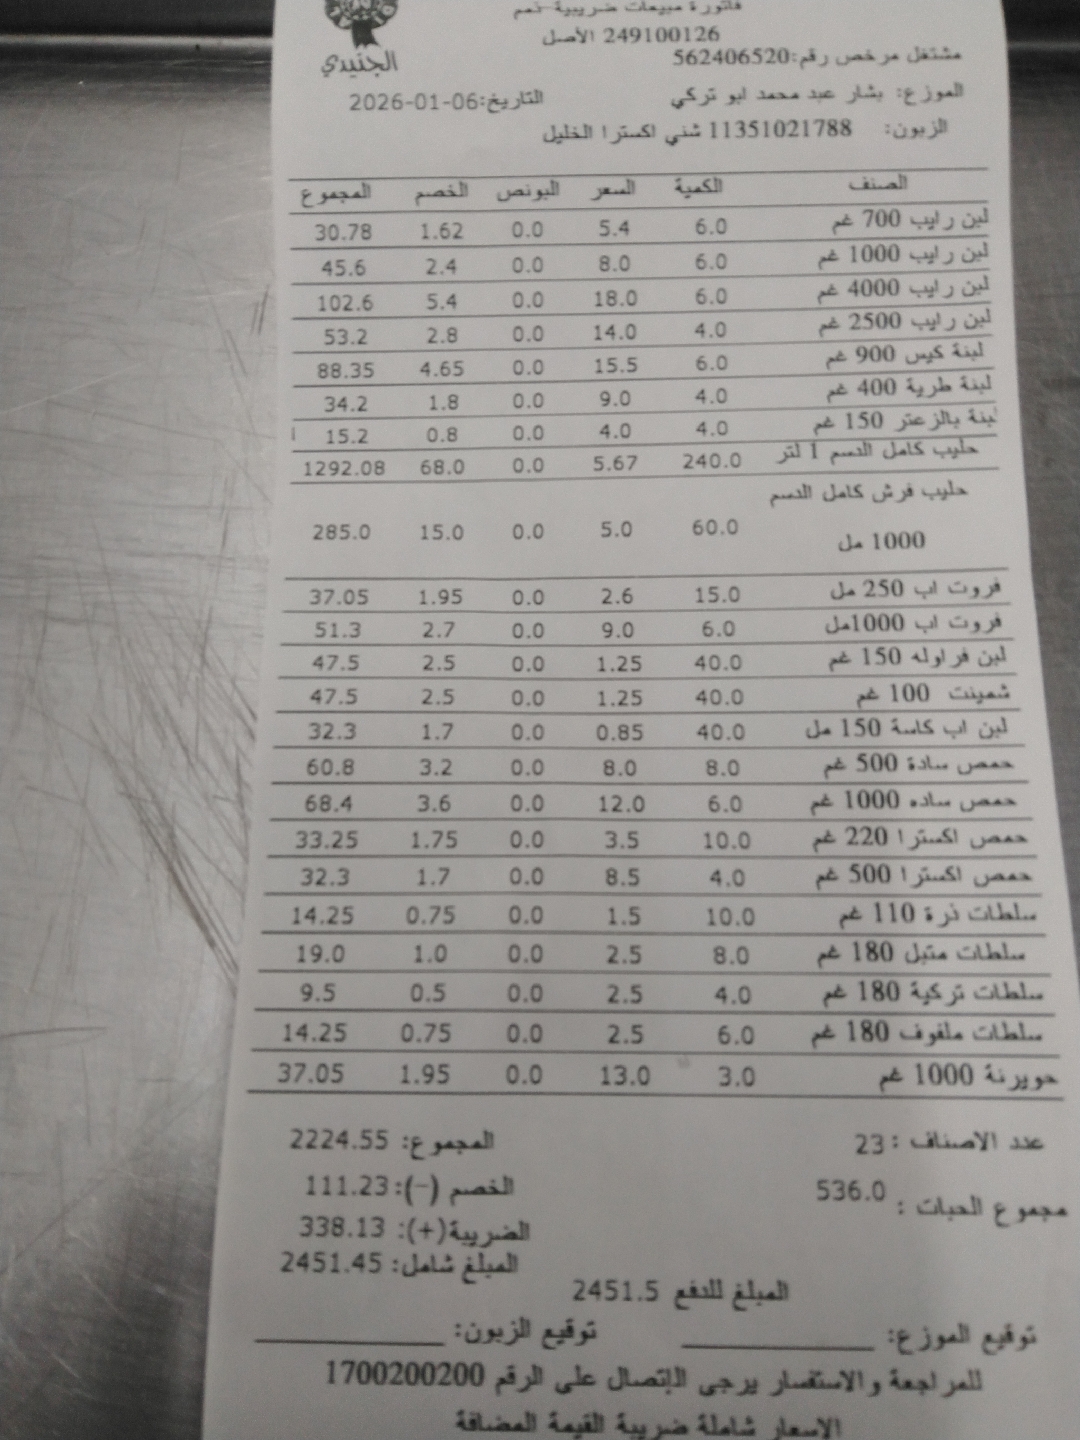 فاتورة مبيعات ضريبية-ذمم
249100126 الأصل
الجنيدي
مشتغل مرخص رقم:562406520
الموزع: بشار عبد محمد ابو تركي التاريخ:2026-01-06
الزبون: 11351021788 شني اكسترا الخليل
الصنف الكمية السعر البونص الخصم المجموع
لبن رايب 700 غم 6.0 5.4 0.0 1.62 30.78
لبن رايب 1000 غم 6.0 8.0 0.0 2.4 45.6
لبن رايب 4000 غم 6.0 18.0 0.0 5.4 102.6
لبن رايب 2500 غم 4.0 14.0 0.0 2.8 53.2
لبنة كيس 900 غم 6.0 15.5 0.0 4.65 88.35
لبنة طرية 400 غم 4.0 9.0 0.0 1.8 34.2
لبنة بالزعتر 150 غم 4.0 4.0 0.0 0.8 15.2
حليب كامل الدسم 1 لتر 240.0 5.67 0.0 68.0 1292.08
حليب فرش كامل الدسم
1000 مل 60.0 5.0 0.0 15.0 285.0
فروت اب 250 مل 15.0 2.6 0.0 1.95 37.05
فروت اب 1000مل 6.0 9.0 0.0 2.7 51.3
لبن فراوله 150 غم 40.0 1.25 0.0 2.5 47.5
شمينت 100 غم 40.0 1.25 0.0 2.5 47.5
لبن اب كاسة 150 مل 40.0 0.85 0.0 1.7 32.3
حمص سادة 500 غم 8.0 8.0 0.0 3.2 60.8
حمص ساده 1000 غم 6.0 12.0 0.0 3.6 68.4
حمص اكسترا 220 غم 10.0 3.5 0.0 1.75 33.25
حمص اكسترا 500 غم 4.0 8.5 0.0 1.7 32.3
سلطات ذرة 110 غم 10.0 1.5 0.0 0.75 14.25
سلطات متبل 180 غم 8.0 2.5 0.0 1.0 19.0
سلطات تركية 180 غم 4.0 2.5 0.0 0.5 9.5
سلطات ملفوف 180 غم 6.0 2.5 0.0 0.75 14.25
حويرنة 1000 غم 3.0 13.0 0.0 1.95 37.05
عدد الاصناف : 23 المجموع: 2224.55
مجموع الحبات : 536.0 الخصم (-): 111.23
الضريبة(+): 338.13
المبلغ شامل: 2451.45
المبلغ للدفع 2451.5
توقيع الموزع: توقيع الزبون:
للمراجعة والاستفسار يرجى الإتصال على الرقم 1700200200
الاسعار شاملة ضريبة القيمة المضافة